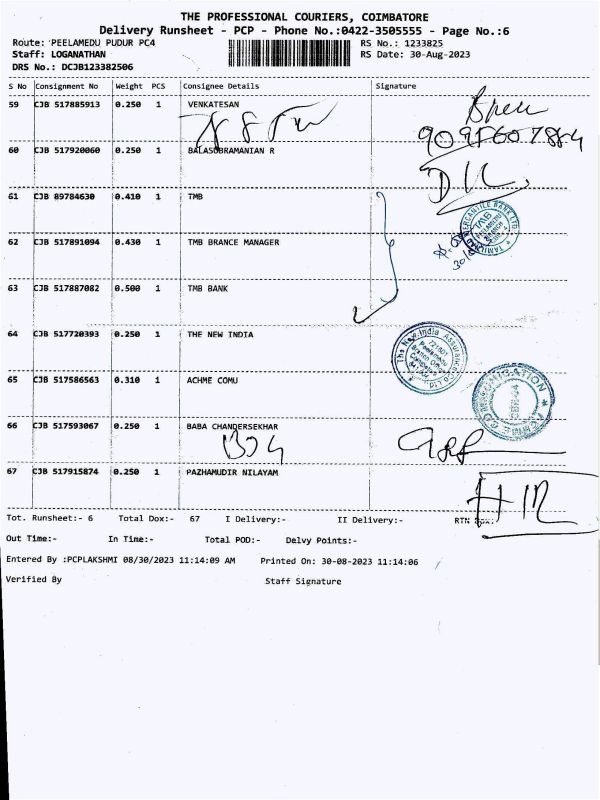 THE PROFESSIONAL COURIERS, COIMBATORE
Delivery Runsheet - PCP - Phone No.:0422-3505555 - Page No.:6
Route: 'PEELAMEDU PUDUR PC4
RS No.: 1233825
Staff: LOGANATHAN
RS Date: 30-Aug-2023
DRS No.: DCJB123382506
S No Consignment No Weight PCS Consignee Details Signature
59 CJB 517885913 0.250 1 VENKATESAN
60 CJB 517920060 0.250 1 BALASUBRAMANIAN R
61 CJB 89784630 0.410 1 TMB
62 CJB 517891094 0.430 1 TMB BRANCE MANAGER
63 CJB 517887082 0.500 1 TMB BANK
64 CJB 517720393 0.250 1 THE NEW INDIA
65 CJB 517586563 0.310 1 ACHME COMU
66 CJB 517593067 0.250 1 BABA CHANDERSEKHAR
67 CJB 517915874 0.250 1 PAZHAMUDIR NILAYAM
Tot. Runsheet:- 6 Total Dox:- 67 I Delivery:- II Delivery:- RTN Dox:
Out Time:- In Time:- Total POD:- Delvy Points:-
Entered By :PCPLAKSHMI 08/30/2023 11:14:09 AM Printed On: 30-08-2023 11:14:06
Verified By Staff Signature